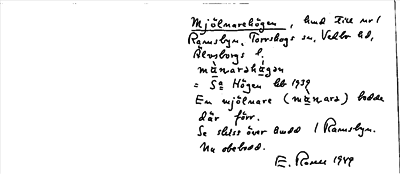 Mjölnarehögen, hmd Fire nr 1
Ramsbyn, Torrskogs sn, Vedbo hd,
Älvsborgs l.
mä̀narahǻgən
= Sa Högen hb 1939
En mjölnare (mä̀nara) bodde
där förr.
Se skiss över hmd 1 Ramsbyn.
Nu obebodd.
E. Rame 1949